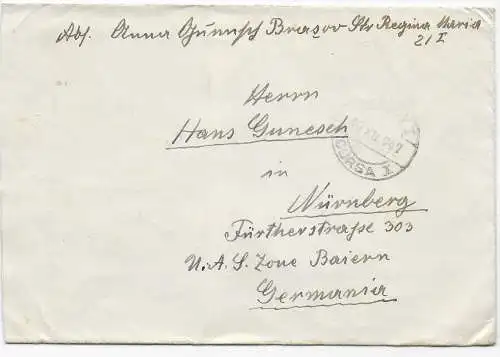 Abs. Anna Gunesch Brașov Str Regina Maria
21 I
Herrn
Hans Gunesch
in
Nürnberg
Fürtherstraße 303
U.A.S. Zone Baiern
Germania
CURSA I